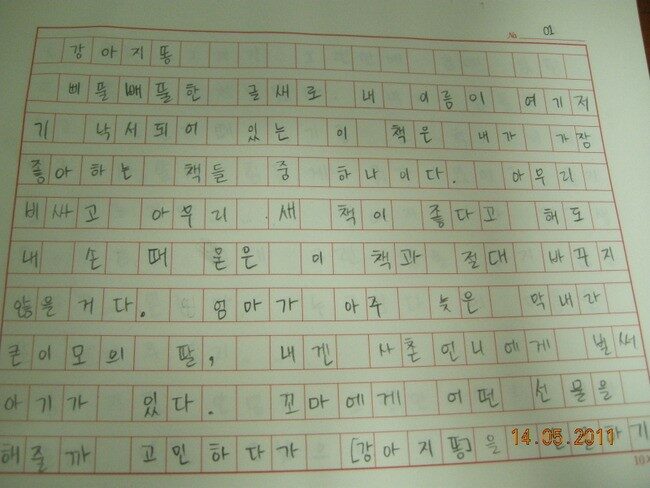 No. 01
강아지똥
삐뚤빼뚤한 글새로 내 이름이 여기저
기 낙서되어 있는 이 책은 내가 가장
좋아하는 책들 중 하나이다. 아무리
비싸고 아무리 새 책이 좋다고 해도
내 손 때 묻은 이 책과 절대 바꾸지
않을 거다. 엄마가 아주 늦은 막내라
큰이모의 딸, 내겐 사촌언니에게 벌써
아기가 있다. 꼬마에게 어떤 선물을
해줄까 고민하다가 [강아지똥]을
14.05.2011